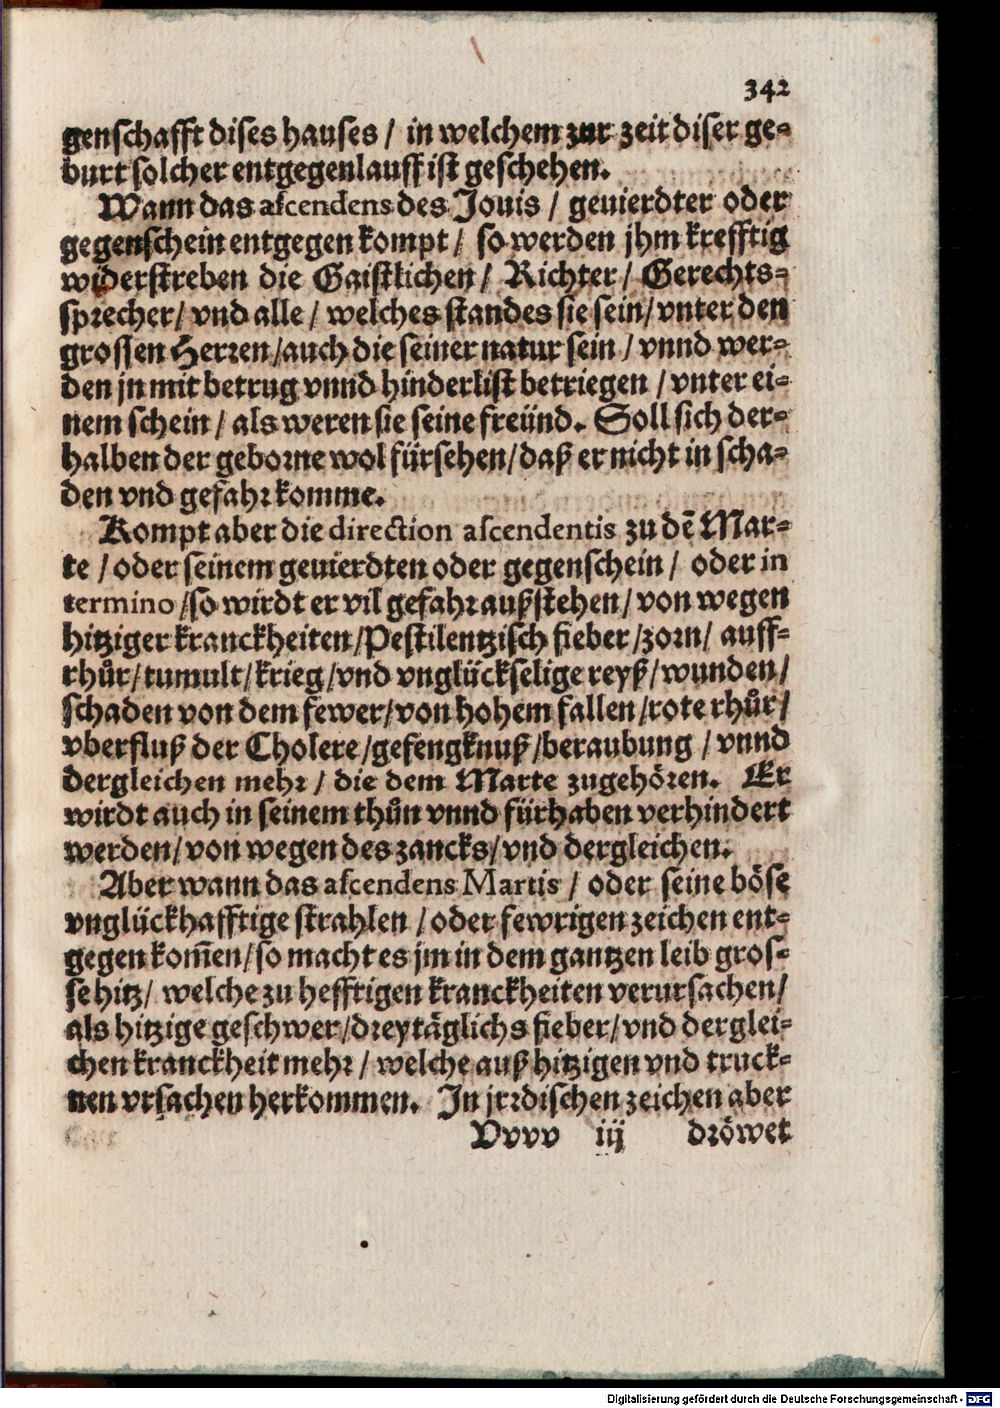 342
genschafft dises hauses / in welchem zur zeit diser ge⸗
burt solcher entgegenlauff ist geschehen.
Wann das ascendens des Jouis / geuierdter oder
gegenschein entgegen kompt / so werden jhm krefftig
widerstreben die Gaistlichen / Richter / Gerechts⸗
sprecher / vnd alle / welches standes sie sein / vnter den
grossen Herren / auch die seiner natur sein / vnnd wer⸗
den jn mit betrug vnnd hinderlist betriegen / vnter ei⸗
nem schein / als weren sie seine freünd. Soll sich der⸗
halben der geborne wol fürsehen / daß er nicht in scha⸗
den vnd gefahr komme.
Kompt aber die direction ascendentis zu dē Mar⸗
te / oder seinem geuierdten oder gegenschein / oder in
termino / so wirdt er vil gefahr außstehen / von wegen
hitziger kranckheiten / Pestilentzisch fieber / zorn / auff⸗
rhůr / tumult / krieg / vnd vnglückselige reyß / wunden /
schaden von dem fewer / von hohem fallen / rote rhůr /
vberfluß der Cholere / gefengknuß / beraubung / vnnd
dergleichen mehr / die dem Marte zugehören. Er
wirdt auch in seinem thůn vnnd fürhaben verhindert
werden / von wegen des zancks / vnd dergleichen.
Aber wann das ascendens Martis / oder seine böse
vnglückhafftige strahlen / oder fewrigen zeichen ent⸗
gegen kom̄en / so macht es jm in dem gantzen leib gros⸗
se hitz / welche zu hefftigen kranckheiten verursachen /
als hitzige geschwer / dreytäglichs fieber / vnd derglei⸗
chen kranckheit mehr / welche auß hitzigen vnd truck⸗
nen vrsachen herkommen. In jrrdischen zeichen aber
Vvvv iij dröwet
Digitalisierung gefördert durch die Deutsche Forschungsgemeinschaft - DFG